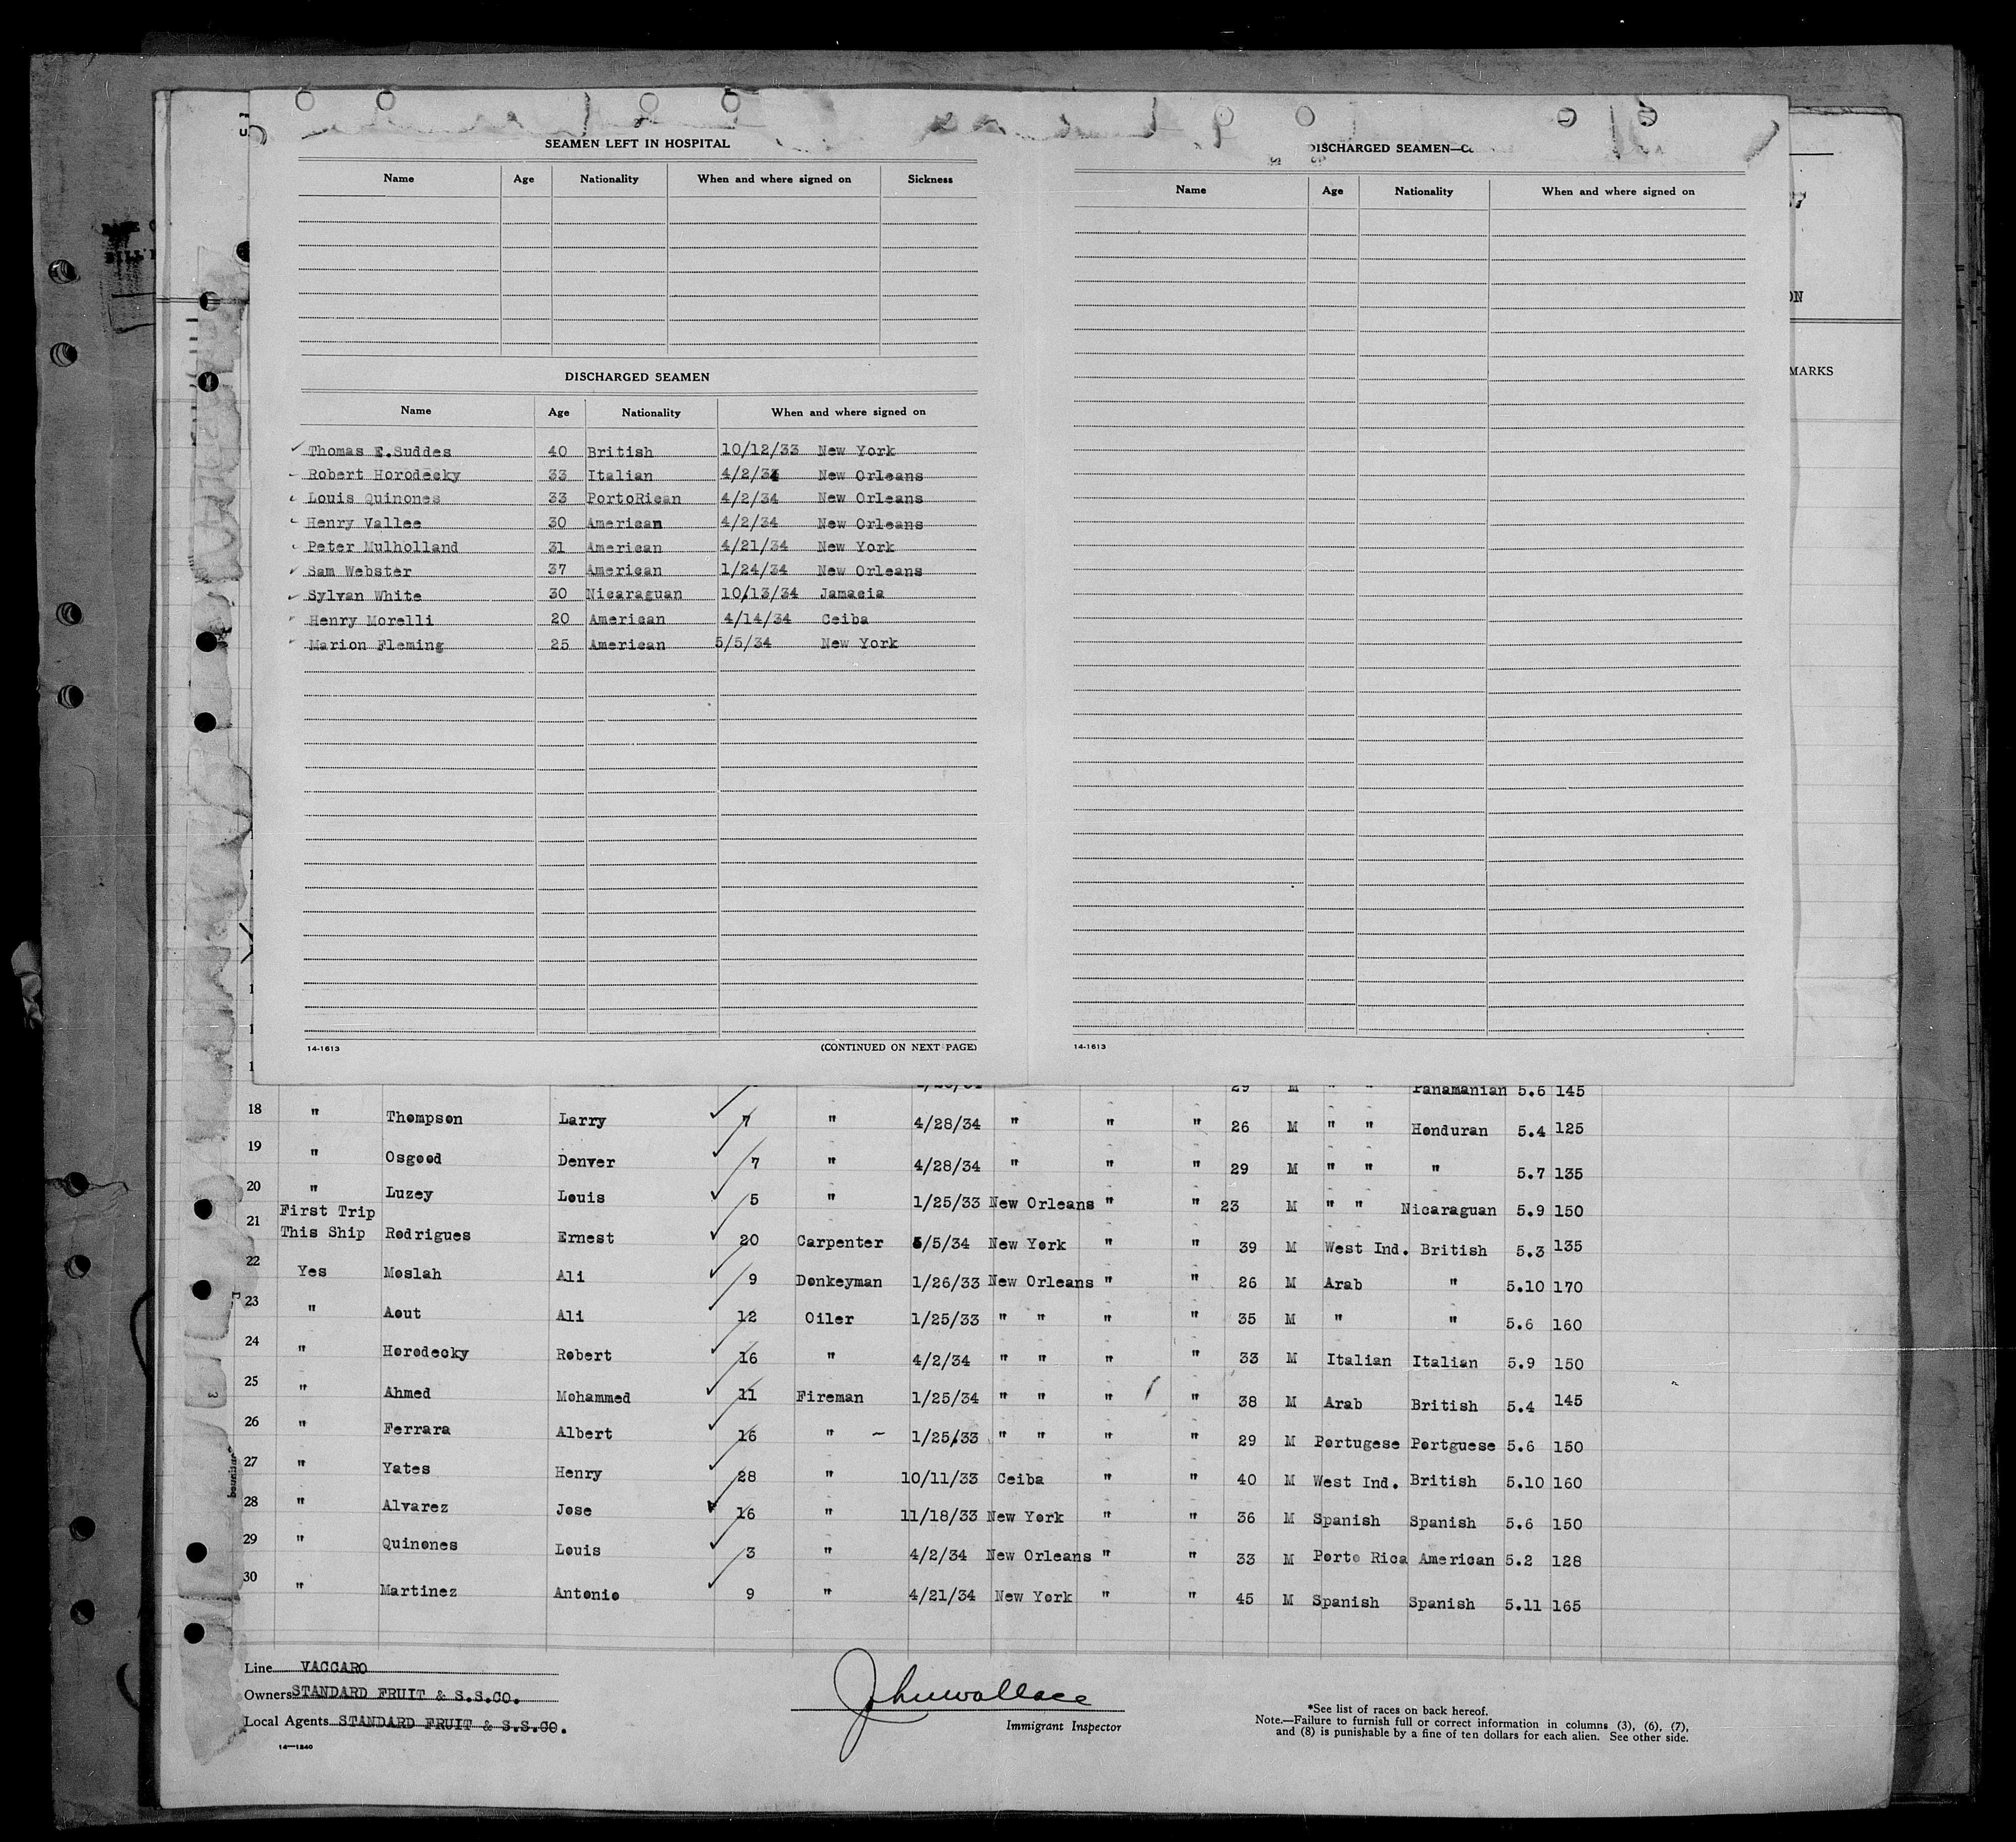 SEAMEN LEFT IN HOSPITAL
Name Age Nationality When and where signed on Sickness
DISCHARGED SEAMEN
Name Age Nationality When and where signed on
Thomas E.Suddes 40 British 10/12/33 New York
Robert Horodecky 33 Italian 4/2/34 New Orleans
Louis Quinones 33 PortoRican 4/2/34 New Orleans
Henry Vallee 30 American 4/2/34 New Orleans
Peter Mulholland 31 American 4/21/34 New York
Sam Webster 37 American 1/24/34 New Orleans
Sylvan White 30 Nicaraguan 10/13/34 Jamacia
Henry Morelli 20 American 4/14/34 Ceiba
Marion Fleming 25 American 5/5/34 New York
14-1613 (CONTINUED ON NEXT PAGE)
DISCHARGED SEAMEN—
Name Age Nationality When and where signed on
14-1613
MARKS
29 M " " Panamanian 5.6 145
18 " Thompson Larry 7 " 4/28/34 " " " 26 M " " Honduran 5.4 125
19 " Osgood Denver 7 " 4/28/34 " " " 29 M " " " 5.7 135
20 " Luzey Louis 5 " 1/25/33 New Orleans " " 23 M " " Nicaraguan 5.9 150
First Trip
21 This Ship Rodrigues Ernest 20 Carpenter 5/5/34 New York " " 39 M West Ind. British 5.3 135
22 Yes Moslah Ali 9 Donkeyman 1/26/33 New Orleans " " 26 M Arab " 5.10 170
23 " Aout Ali 12 Oiler 1/25/33 " " " " 35 M " " 5.6 160
24 " Horodecky Robert 16 " 4/2/34 " " " " 33 M Italian Italian 5.9 150
25 " Ahmed Mohammed 11 Fireman 1/25/34 " " " " 38 M Arab British 5.4 145
26 " Ferrara Albert 16 " 1/25/33 " " " " 29 M Portugese Portguese 5.6 150
27 " Yates Henry 28 " 10/11/33 Ceiba " " 40 M West Ind. British 5.10 160
28 " Alvarez Jose 16 " 11/18/33 New York " " 36 M Spanish Spanish 5.6 150
29 " Quinones Louis 3 " 4/2/34 New Orleans " " 33 M Porto Rica American 5.2 128
30 " Martinez Antonio 9 " 4/21/34 New York " " 45 M Spanish Spanish 5.11 165
Line VACCARO
Owners STANDARD FRUIT & S.S.CO.
Local Agents STANDARD FRUIT & S.S.CO.
14—1240
Jhnwallace
Immigrant Inspector
*See list of races on back hereof.
Note.—Failure to furnish full or correct information in columns (3), (6), (7),
and (8) is punishable by a fine of ten dollars for each alien. See other side.